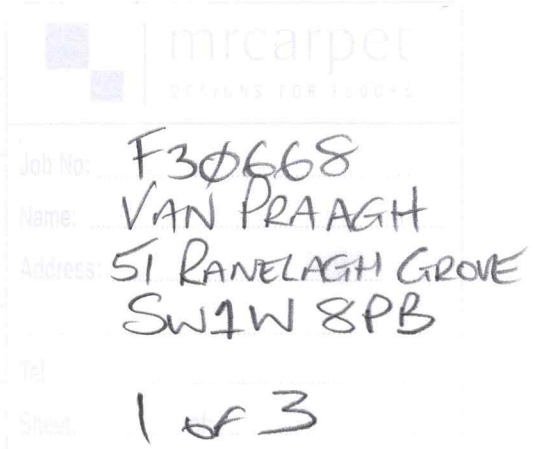 mrcarpet
DESIGNS FOR FLOORS
Job No: F30668
Name: VAN PRAAGH
Address: 51 RANELAGH GROVE
SW1W 8PB
Tel
Sheet: 1 of 3